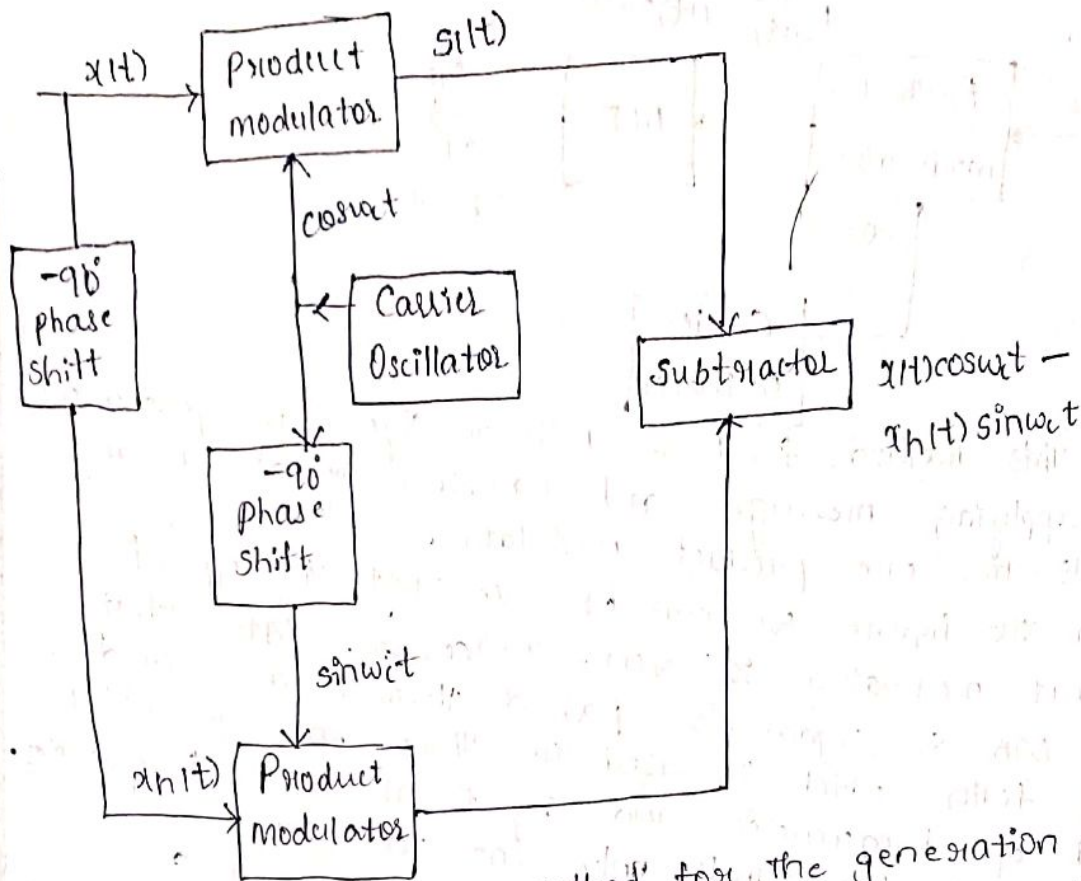 x(t)
Product
modulator
S1(t)
cosωct
-90°
phase
shift
Carrier
Oscillator
Subtractor
x(t)cosωct -
xh(t) sinωct
-90°
phase
shift
sinωct
xh(t)
Product
modulator
for the generation